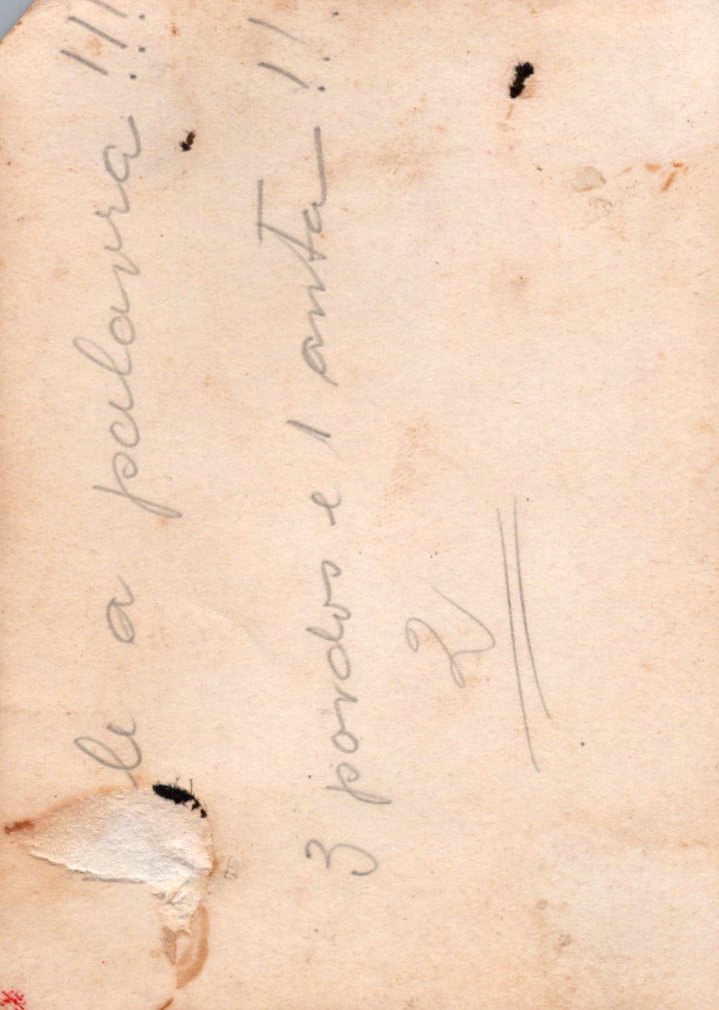 le a palavra !!!
3 pardos e 1 anta !!
2